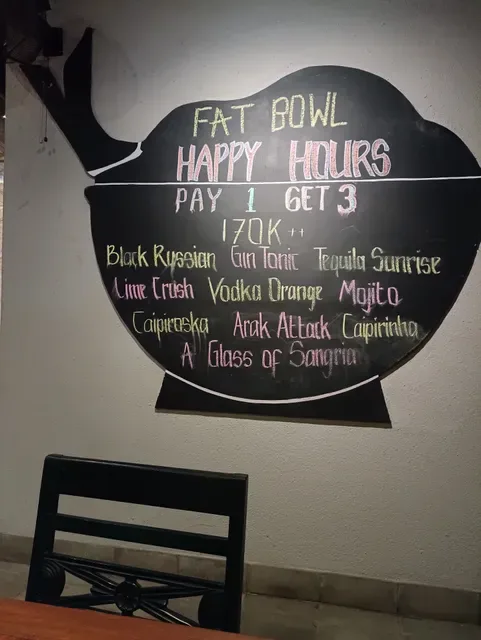 FAT BOWL
HAPPY HOURS
PAY 1 GET 3
170K ++
Black Ryssian Gin Tonic Tequila Sunrise
Lime Crush Vodka Orange Mojito
Caipiroska Arak Attack Caipirinha
A Glass of Sangria